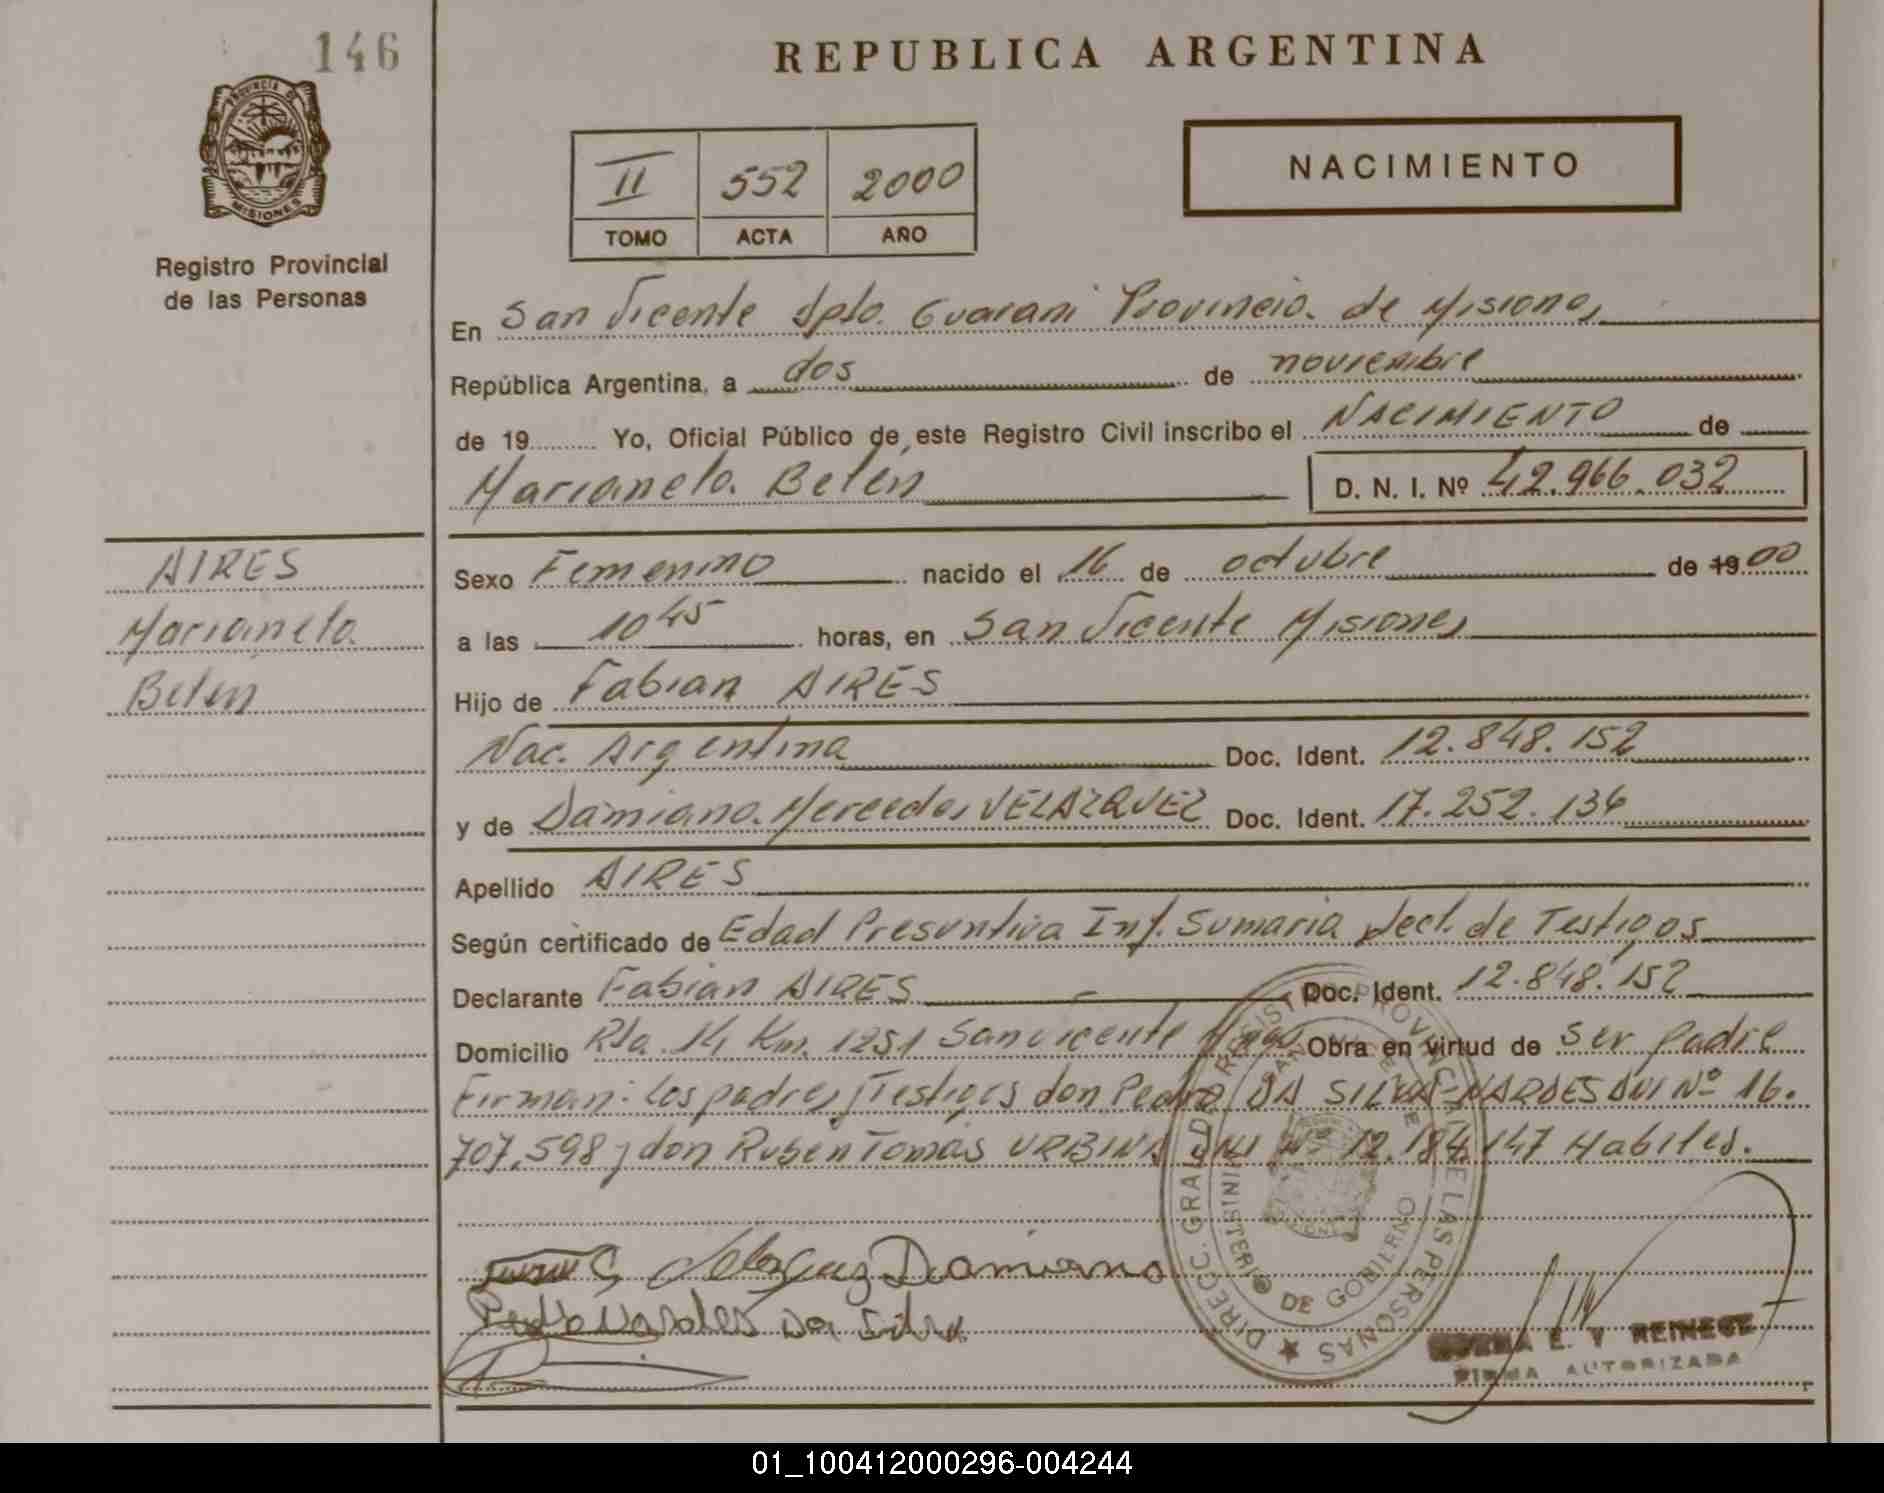 146
REPUBLICA ARGENTINA
PROVINCIA DE
MISIONES
II 552 2000
TOMO ACTA AÑO
NACIMIENTO
Registro Provincial
de las Personas
En San Vicente Dpto. Guarani Provincia de Misiones
República Argentina, a dos de noviembre
de 19 Yo, Oficial Público de este Registro Civil inscribo el NACIMIENTO de
Marianela Belén D. N. I. Nº 42.966.032
AIRES
Marianela
Belén
Sexo Femenino nacido el 16 de octubre de 19 00
a las 10 45 horas, en San Vicente Misiones
Hijo de Fabian AIRES
Nac. Argentina Doc. Ident. 12.848.152
y de Damiana Mercedes VELAZQUEZ Doc. Ident. 17.252.136
Apellido AIRES
Según certificado de Edad Presuntiva Inf. Sumaria decl. de Testigos
Declarante Fabian AIRES Doc. Ident. 12.848.152
Domicilio Rta. 14 Km. 1251 San Vicente Mnes Obra en virtud de ser padre
Firman: los padres y Testigos don Pedro DA SILVA NARDES DNI Nº 16.
707.598 y don Ruben Tomas URBINA DNI Nº 12.184.147 Habiles.
Velazquez Damiana
Pedro Nardes Da Silva
DIRECC. GRAL. DE REGISTRO PROVINCIAL DE LAS PERSONAS
SAN VICENTE
MINISTERIO DE GOBIERNO
NORMA E. V REINECE
FIRMA AUTORIZADA
01_100412000296-004244